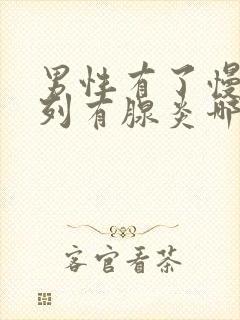 男性有了慢
列有腺炎哪
客官看茶